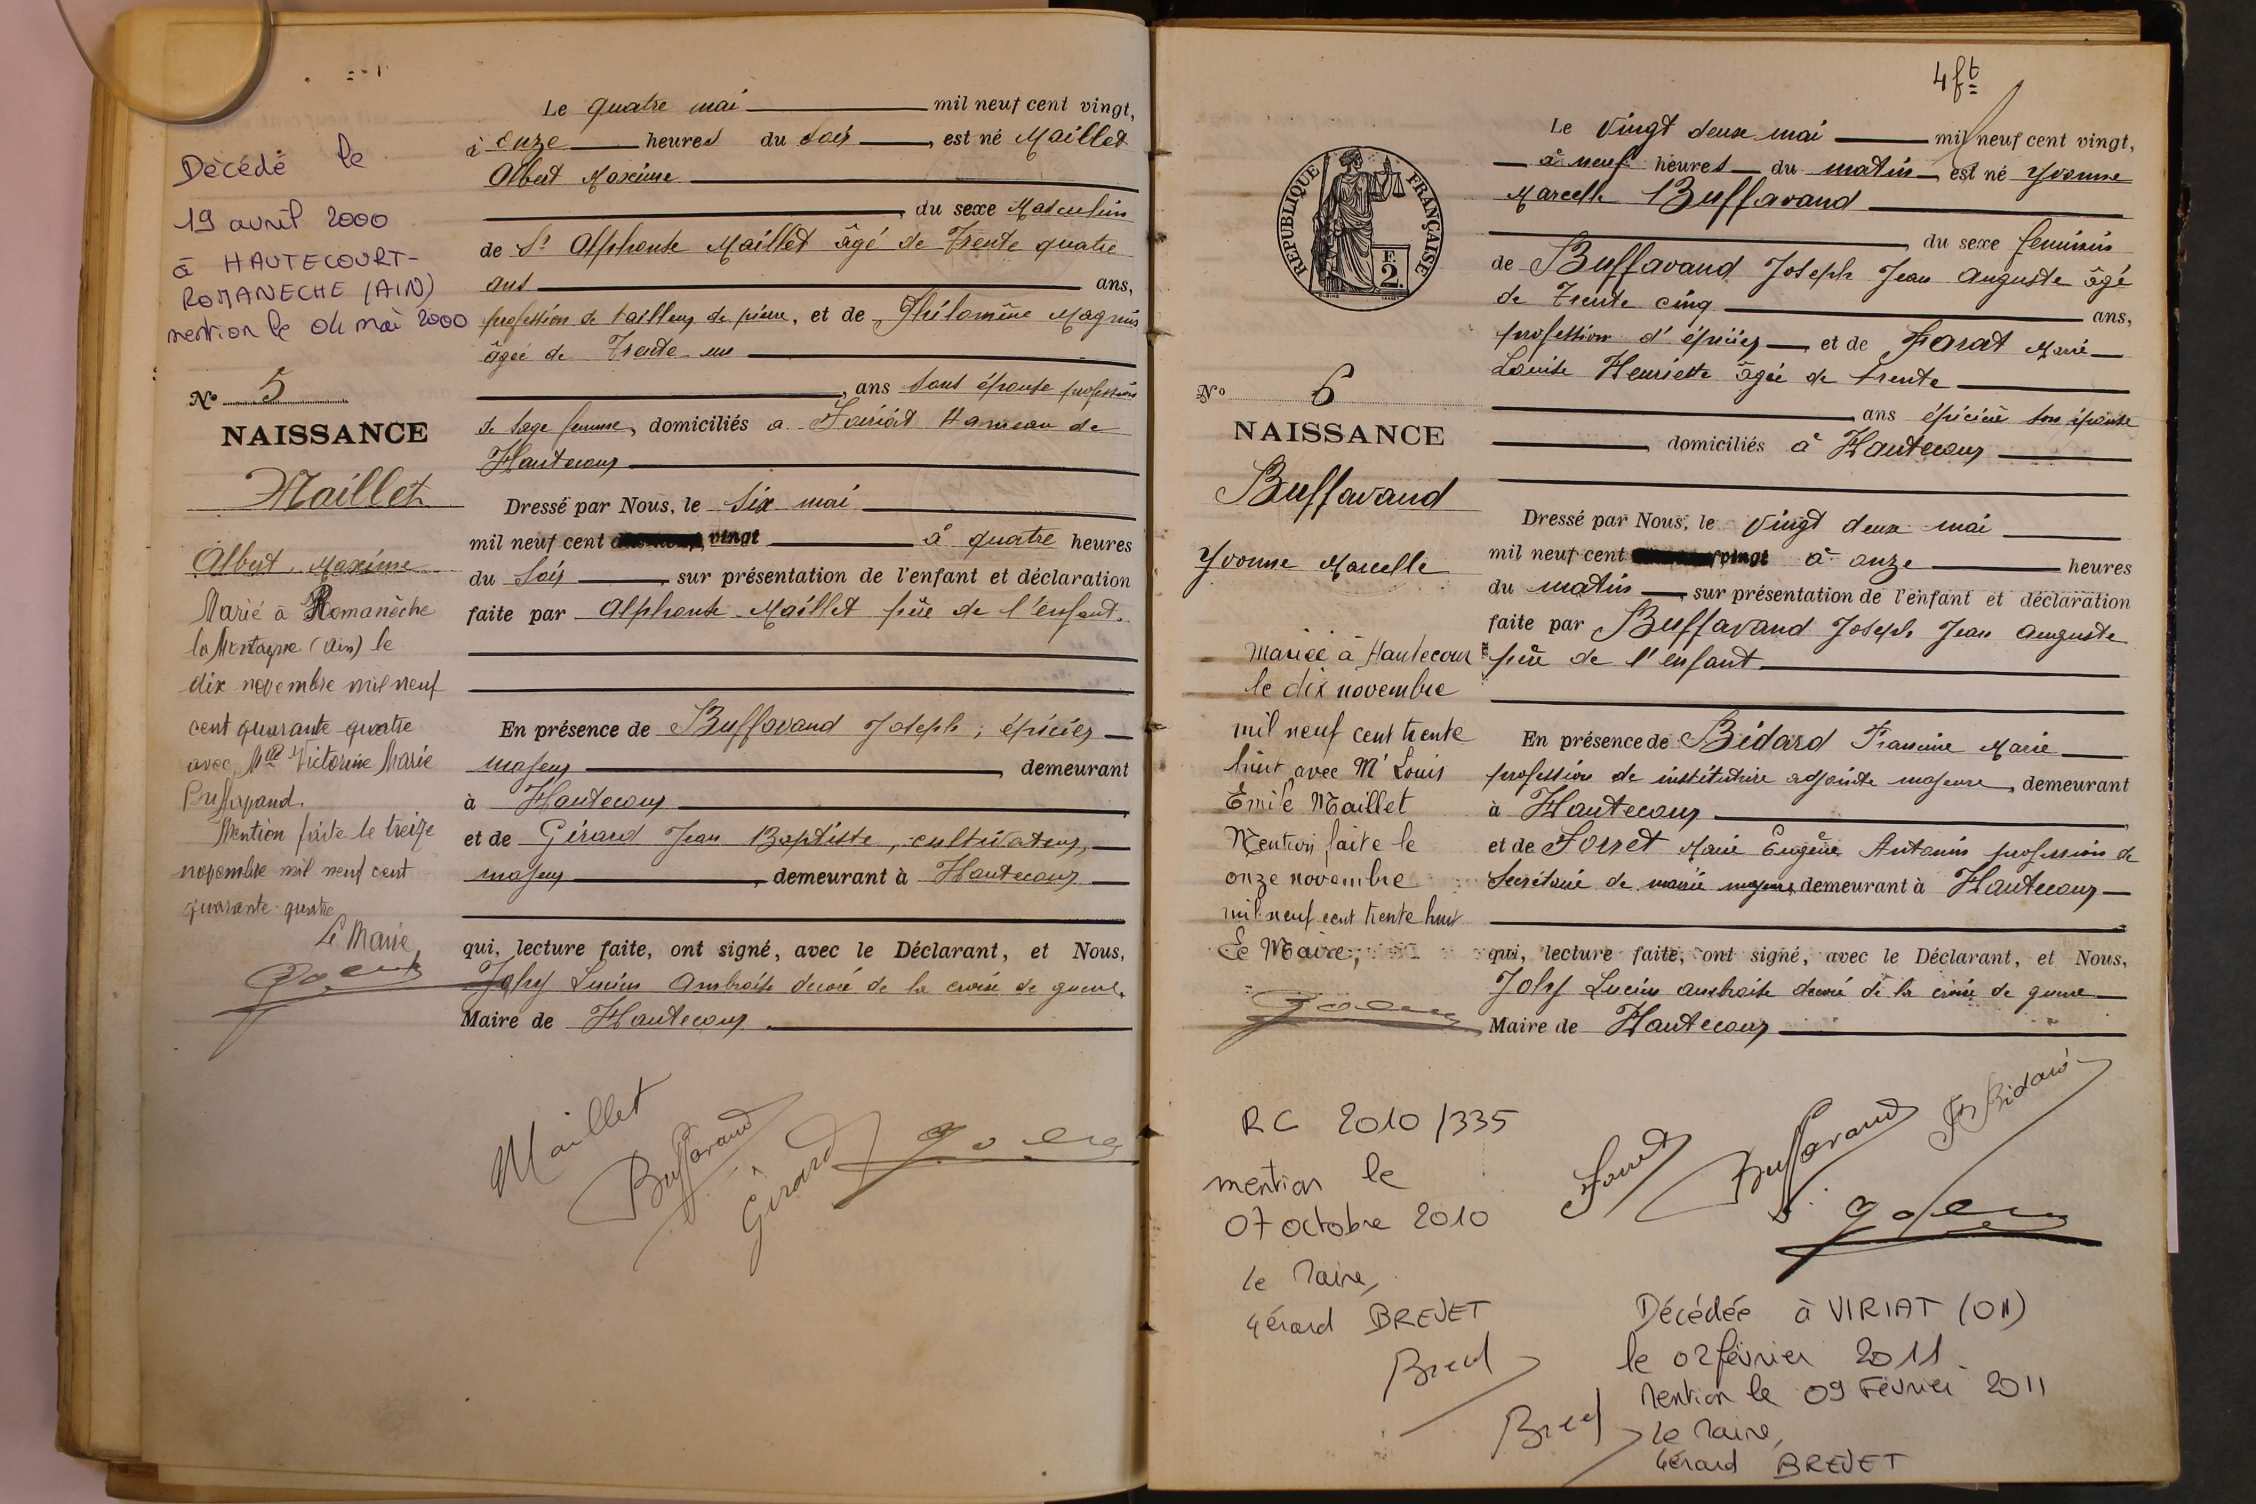 Le quatre mai mil neuf cent vingt,
à onze heures du soir, est né Maillet
Albert Maxime
du sexe Masculin
de Sr Alphonse Maillet âgé de Trente quatre
ans ans,
profession de tailleur de pierre, et de Philomène Magnin
âgée de Trente un
, ans sont épouse profession
de sage femme, domiciliés à Hameau de
Hautecour
Décédé le
19 avril 2000
à HAUTECOURT-
ROMANECHE (AIN)
mention le 04 mai 2000
No 5
NAISSANCE
Maillet
Albert Maxime
Marié à Romanèche
la Montagne (Ain) le
dix novembre mil neuf
cent quarante quatre
avec Mlle Victorine Marie
Buffavand.
Mention faite le treize
novembre mil neuf cent
quarante-quatre
Le Maire
Dressé par Nous, le six mai
mil neuf cent vingt à quatre heures
du soir, sur présentation de l'enfant et déclaration
faite par Alphonse Maillet père de l'enfant.
En présence de Buffavand Joseph, épicier
majeur, demeurant
à Hautecour
et de Gérard Jean Baptiste, cultivateur,
majeur, demeurant à Hautecour
qui, lecture faite, ont signé, avec le Déclarant, et Nous,
Joly Lucien Ambroise décoré de la croix de guerre,
Maire de Hautecour.
Maillet
Buffavand
Gérard
Joly
4 ft
Le vingt deux mai mil neuf cent vingt,
à neuf heures du matin, est né Yvonne
Marcelle Buffavand
du sexe feminin
de Buffavand Joseph Jean Auguste âgé
de Trente cinq ans,
profession d'épicier, et de Farat Marie
Louise Henriette âgée de trente
ans épicière son épouse
, domiciliés à Hautecour
RÉPUBLIQUE FRANÇAISE
F.
2.
No 6
NAISSANCE
Buffavand
Yvonne Marcelle
Mariée à Hautecour
le dix novembre
mil neuf cent trente
huit avec Mr Louis
Emile Maillet
Mention faite le
onze novembre
mil neuf cent trente huit
Le Maire,
Dressé par Nous, le vingt deux mai
mil neuf cent vingt à onze heures
du matin, sur présentation de l'enfant et déclaration
faite par Buffavand Joseph Jean Auguste
père de l'enfant.
En présence de Bidard Francine Marie
profession de institutrice adjointe majeure, demeurant
à Hautecour
et de Forret Marie Eugène Antonin profession de
Secrétaire de mairie majeur, demeurant à Hautecour
qui, lecture faite, ont signé, avec le Déclarant, et Nous,
Joly Lucien Ambroise décoré de la croix de guerre
Maire de Hautecour
Forret
Buffavand
F Bidard
Joly
RC 2010/335
mention le
07 octobre 2010
Le Maire,
Gérard BREVET
Décédée à VIRIAT (01)
le 02 février 2011
Mention le 09 Février 2011
Le Maire,
Gérard BREVET